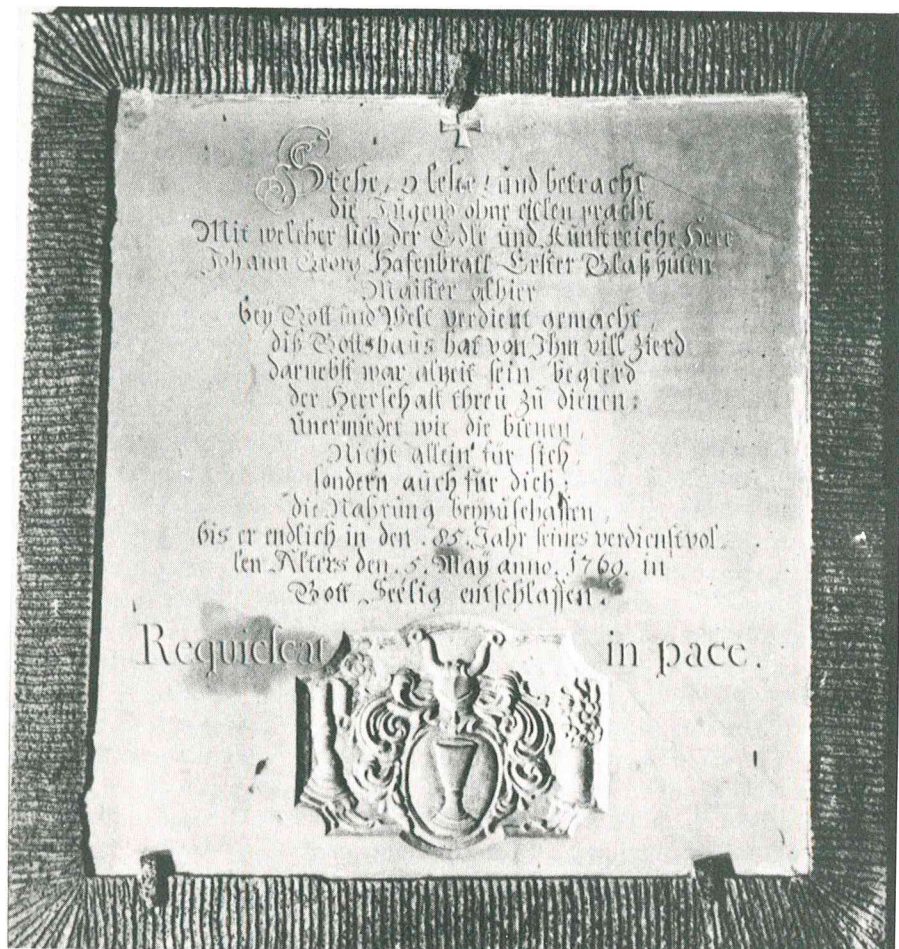 Stehe, o leser! und betracht
die Tugend ohne eitlen pracht
Mit welcher sich der Edle und Kunstreiche Herr
Johann Georg Hafenbratl Erster Glaßhüten
Maister alhier
bey Gott und Welt verdient gemacht,
diß Gottshaus hat von Ihm vill Zierd
darnebst war alzeit sein begierd
der Herrschaft threu zu dienen:
unermieder wie die bienen,
Nicht allein für sich,
sondern auch für dich;
die Nahrung beyzuschaffen,
bis er endlich in den .85. Jahr seines verdienstvol
len Alters den .5. May anno. 1769. in
Gott Seelig entschlaffen.
Requiescat in pace.